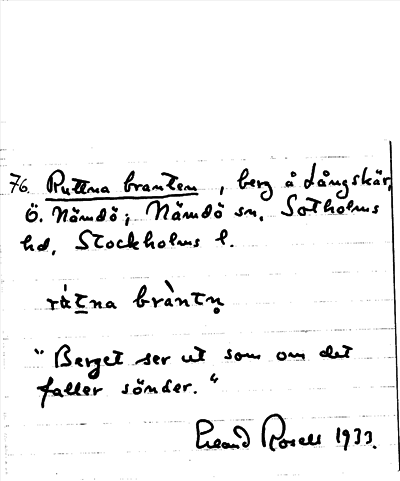 76. Ruttna branten, berg å Långskär,
Ö. Nämdö; Nämdö sn, Sotholms
hd, Stockholms l.
rátna bràntn̥
"Berget ser ut som om det
faller sönder."
Erland Rosell 1933.